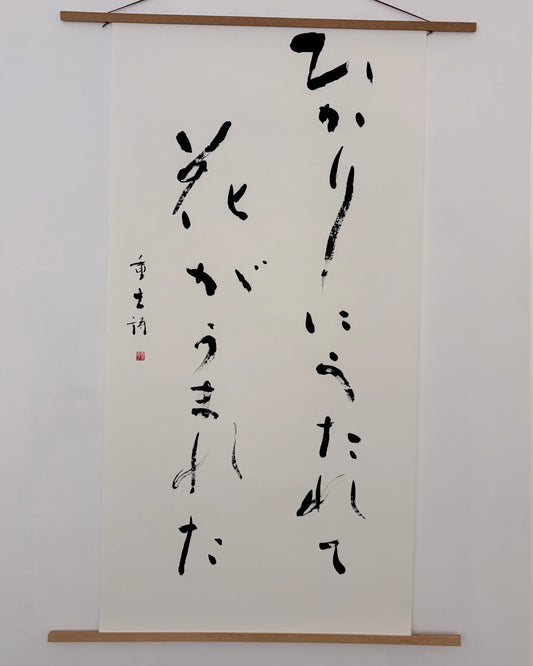 ひかりにうたれて
花がうまれた
重吉詩